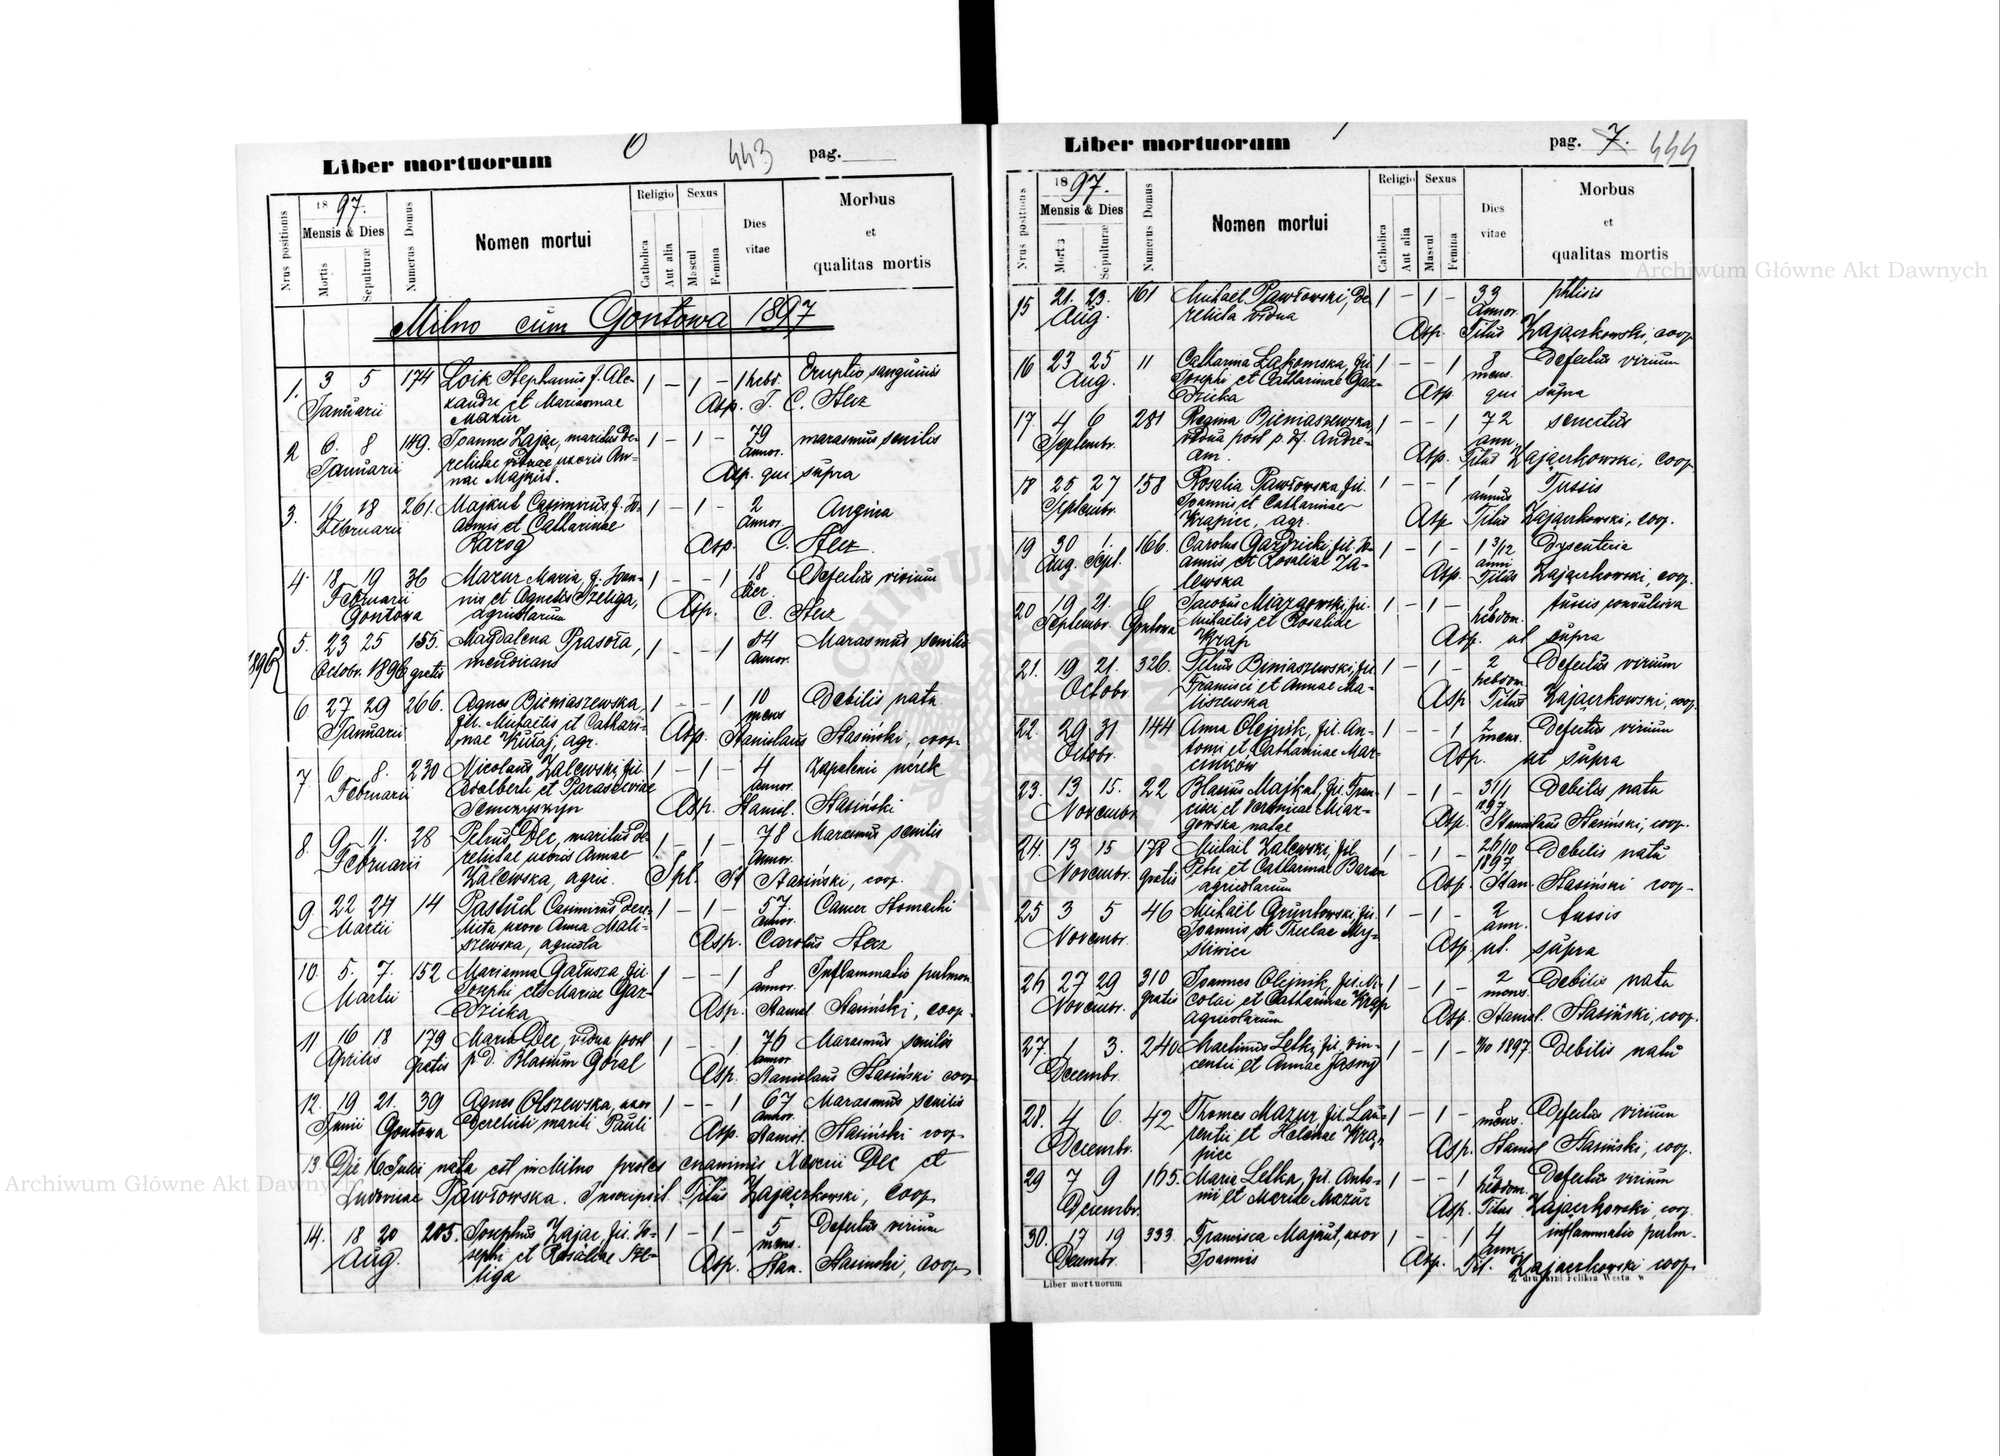 Liber mortuorum
6
443
pag.
Nrus positionis
1897.
Mensis & Dies
Mortis
Sepulturæ
Numerus Domus
Nomen mortui
Religio
Catholica
Aut alia
Sexus
Mascul
Femina
Dies vitae
Morbus
et
qualitas mortis
Milno cum Gontowa 1897
1. 3 5 174 Loik Stephanus f. Ale- 1 – 1 – 1 hebd. Eruptio sanguinis
Januarii xandri et Mariannae Asp. T. C. Stecz
Mazur
2 6. 8 149. Joannes Zając, maritus de- 1 – 1 – 79 marasmus senilis
Januarii relictae viduae uxoris An- annor.
nae Majkut. Asp. qui supra
3. 16 18 261. Majkut Casimirus f. Jo- 1 – 1 – 2 Angina
Februarii annis et Catharinae annor.
Rarog Asp. C. Stecz.
4. 18 19 36 Mazur Maria, f. Joan- 1 – – 1 18 Defectus virium
Februarii nis et Agnetis Szeliga, dier.
Gontowa agricolarum Asp. C. Stecz
1896
5. 23 25 155. Magdalena Prasoła, 1 – – 1 54 Marasmus senilis
Octobr. 1896 gratis mendicans annor.
6 27 29 266. Agnes Bieniaszewska, 1 – – 1 10 Debilis natu
Januarii fil. Michaelis et Cathari- mens
nae Kułaj, agr. Asp. Stanislaus Stasiński, coop.
7. 6 8. 230 Nicolaus Zalewski, fil. 1 – 1 – 4 Zapalenie nerek
Februarii Adalberti et Parasceviae annor.
Asp. Stanisl. Stasiński
8. 9 11. 28 Petrus Dec, maritus de- 1 – 1 – 78 Marasmus senilis
Februarii relictae uxoris Annae annor.
Zalewska, agric. Spl. St Stasiński, coop.
9. 22 24 14 Pastuch Casimirus dere- 1 – 1 – 57. Cancer stomachi
Martii licta uxore Anna Mali- annor.
szewska, agricola Asp. Carolus Stecz
10. 5. 7. 152 Marianna Gałusza, fil. 1 – – 1 8 Inflammatio pulmon.
Martii Josephi et Mariae Gaz- annor.
dzicka Asp. Stanisl. Stasiński, coop.
11 16 18 179 Maria Dec, vidua post 1 – – 1 76 Marasmus senilis
Aprilis gratis p. d. Blasium Góral annor
Asp. Stanislaus Stasiński coop
12. 19 21. 39 Agnes Olszewska, uxor 1 – – 1 67 Marasmus senilis
Junii Gontowa derelicti mariti Pauli annor.
Asp. Stanisl. Stasiński coop.
13 Die 16 Julii nata est in Milno proles exanimis Xaverii Dec et
Ludovicae Pawłowska. Inscripsit Titus Zajączkowski, coop
14. 18 20 205. Josephus Zając, fil. Jo- 1 – 1 – 5 Defectus virium
Aug. sephi et Rosaliae Sze- mens.
liga Asp. Stan. Stasinski, coop.
Liber mortuorum
pag. 7. 444
Nrus positionis
1897.
Mensis & Dies
Mortis
Sepulturæ
Numerus Domus
Nomen mortui
Religio
Catholica
Aut alia
Sexus
Mascul
Femina
Dies vitae
Morbus
et
qualitas mortis
15 21. 23. 161 Michaël Pawłowski, de- 1 – 1 – 33 phtisis
Aug. relicta vidua annor.
Asp. Titus Zajączkowski, coop
16 23 25 11 Catharina Łakomska, fil. 1 – – 1 8 Defectus virium
Aug. Josephi et Catharinae Gaz- mens.
dzicka Asp qui supra
17 4 6 281 Regina Bieniaszewska, 1 – – 1 72 senectus
Septembr. vidua post p. df. Andre- ann.
am. Asp. Titus Zajączkowski, coop
18 25 27 158 Rosalia Pawłowska, fil. 1 – – 1 1 Tussis
Septembr. Joannis et Catharinae annus
Krąpiec, agr. Asp Titus Zajączkowski, coop.
19 30 1. 166. Carolus Gazdzicki, fil. Jo- 1 – 1 – 1 3/12 Dysenteria
Aug. Sept. annis et Rosaliae Za- anni
lewska Asp. Titus Zajączkowski, coop.
20 19 21. 6 Jacobus Miazgowski, fil. 1 – 1 – 8 tussis convulsiva
Septembr. Gontowa Michaelis et Rosaliae hebdom.
Krąp Asp. ut supra
21. 19 21. 326. Petrus Bieniaszewski, fil. 1 – 1 – 2 Defectus virium
Octobr Francisci et Annae Ma- hebdom.
liszewska Asp Titus Zajączkowski, coop.
22. 29 31 144 Anna Olejnik, fil. An- 1 – – 1 2 Defectus virium
Octobr. tonii et Catharinae Mar- mens.
cinków Asp. ut supra
23. 13 15. 22 Blasius Majkut, fil. Fran- 1 – 1 – Debilis natu
Novembr. cisci et Veronicae Miaz- 1897
gowska natae Asp. Stanislaus Stasiński, coop.
24. 13 15 178 Michaël Zalewski, fil. 1 – 1 – 26/10 Debilis natu
Novembr. gratis Petri et Catharinae Baran 1897
agricolarum Asp. Stan. Stasiński coop.
25 3 5 46 Michaël Gruntowski, fil. 1 – 1 – 2 tussis
Novembr. Joannis et Theclae My- ann.
śliwiec Asp ut. supra
26 27 29 310 Joannes Olejnik, fil. Ni- 1 – 1 – 2 Debilis natu
Novembr. gratis colai et Catharinae Krąp mens.
agricolarum Asp. Stanisl. Stasiński, coop.
27. 1 3. 240 Martinus Letki, fil. Vin- 1 – 1 – 1897. Debilis natu
Decembr. centii et Annae Jasny
28. 4 6. 42 Thomas Mazur, fil. Lau- 1 – 1 – 8 Defectus virium
Decembr. rentii et Helenae Krą- mens.
piec Asp. Stanisl Stasiński, coop.
29 7 9 165. Maria Letka, fil. Anto- 1 – – 1 2 Defectus virium
Decembr. nii et Mariae Mazur hebdom.
Asp. Titus Zajączkowski, coop.
30. 17 19 333. Francisca Majkut, uxor 1 – – 1 4 inflammatio pulm.
Decembr. Joannis ann.
Asp. Tit. Zajączkowski coop.
Liber mortuorum
Z drukarni Feliksa Westa w
Archiwum Główne Akt Dawnych
Archiwum Główne Akt Dawnych